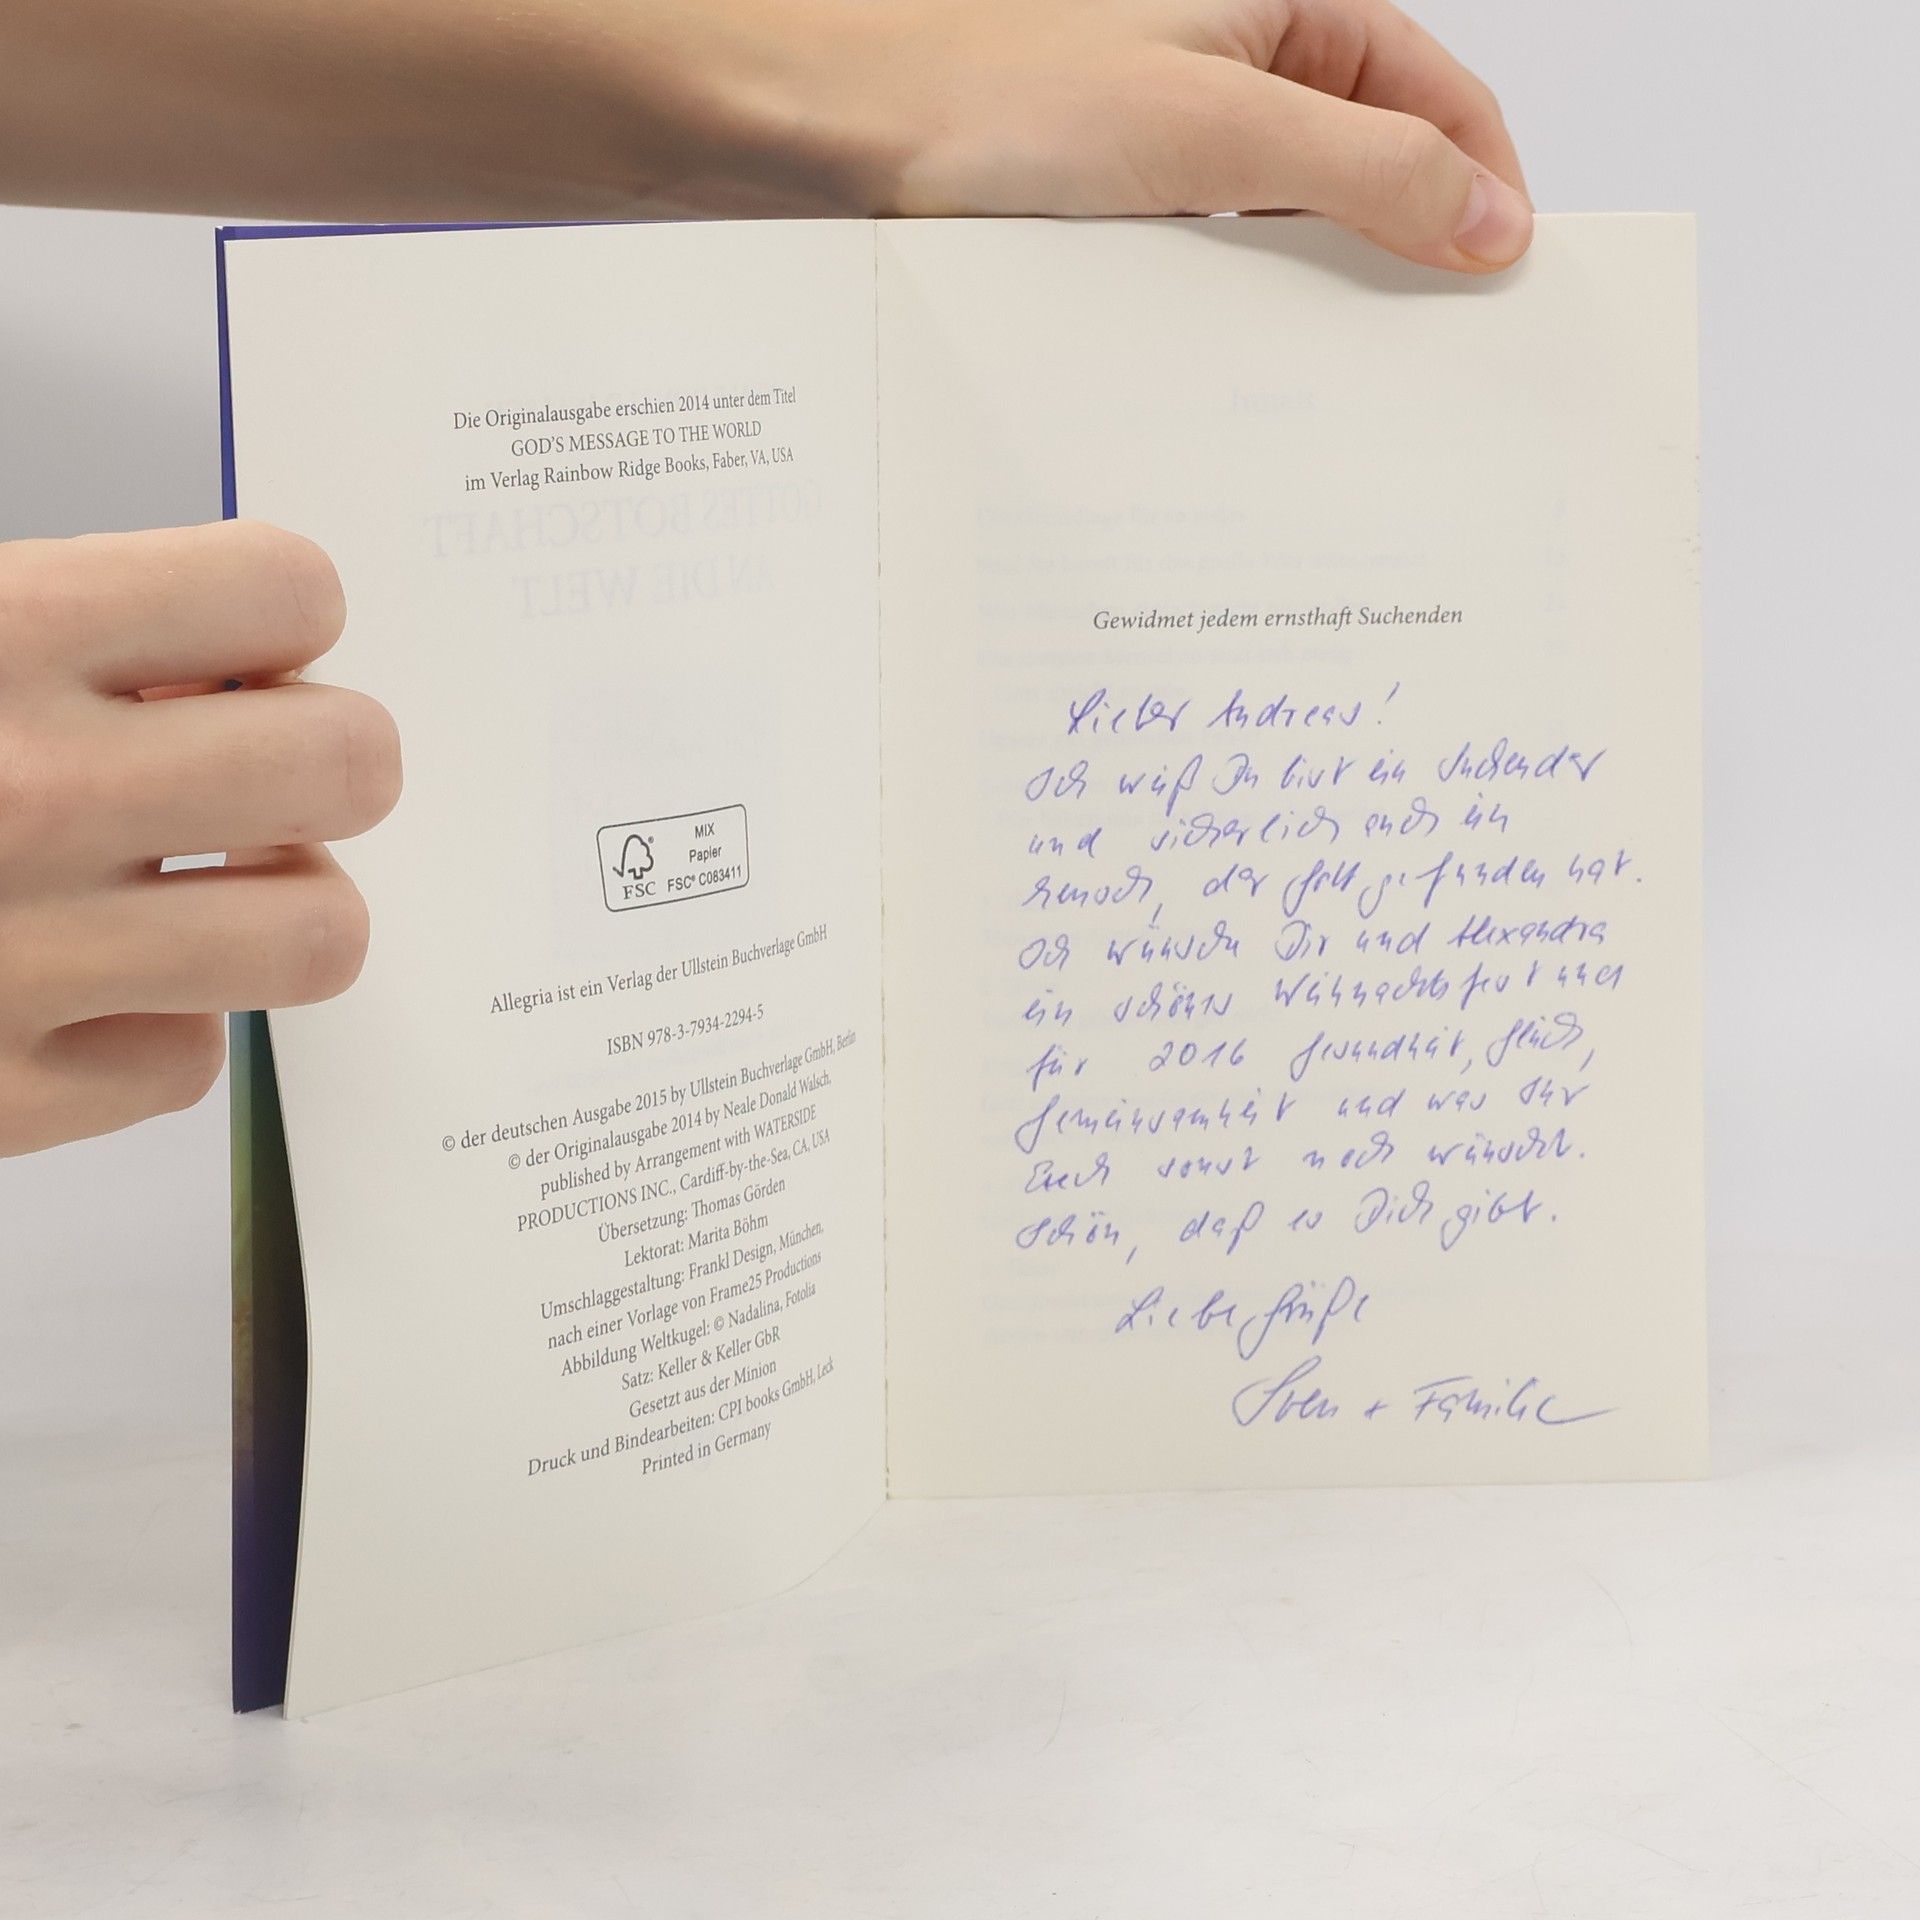 Die Originalausgabe erschien 2014 unter dem Titel
GOD'S MESSAGE TO THE WORLD
im Verlag Rainbow Ridge Books, Faber, VA, USA
GOTTES BOTSCHAFT
AN DIE WELT
FSC®
FSC
MIX
Papier
FSC® C083411
Allegria ist ein Verlag der Ullstein Buchverlage GmbH
ISBN 978-3-7934-2294-5
© der deutschen Ausgabe 2015 by Ullstein Buchverlage GmbH, Berlin
© der Originalausgabe 2014 by Neale Donald Walsch,
published by Arrangement with WATERSIDE
PRODUCTIONS INC., Cardiff-by-the-Sea, CA, USA
Übersetzung: Thomas Görden
Lektorat: Marita Böhm
Umschlaggestaltung: Frankl Design, München,
nach einer Vorlage von Frame25 Productions
Abbildung Weltkugel: © Nadalina, Fotolia
Satz: Keller & Keller GbR
Gesetzt aus der Minion
Druck und Bindearbeiten: CPI books GmbH, Leck
Printed in Germany
Inhalt
Gewidmet jedem ernsthaft Suchenden
Lieber Andreas!
Ich weiß Du bist ein Suchender
und sicherlich auch ein
Mensch, der Gott gefunden hat.
Ich wünsche Dir und Alexandra
ein schönes Weihnachtsfest und
für 2016 Gesundheit, Glück,
Gemeinsamkeit und was Ihr
Euch sonst noch wünscht.
Schön, daß es Dich gibt.
Liebe Grüße
Sven + Familie